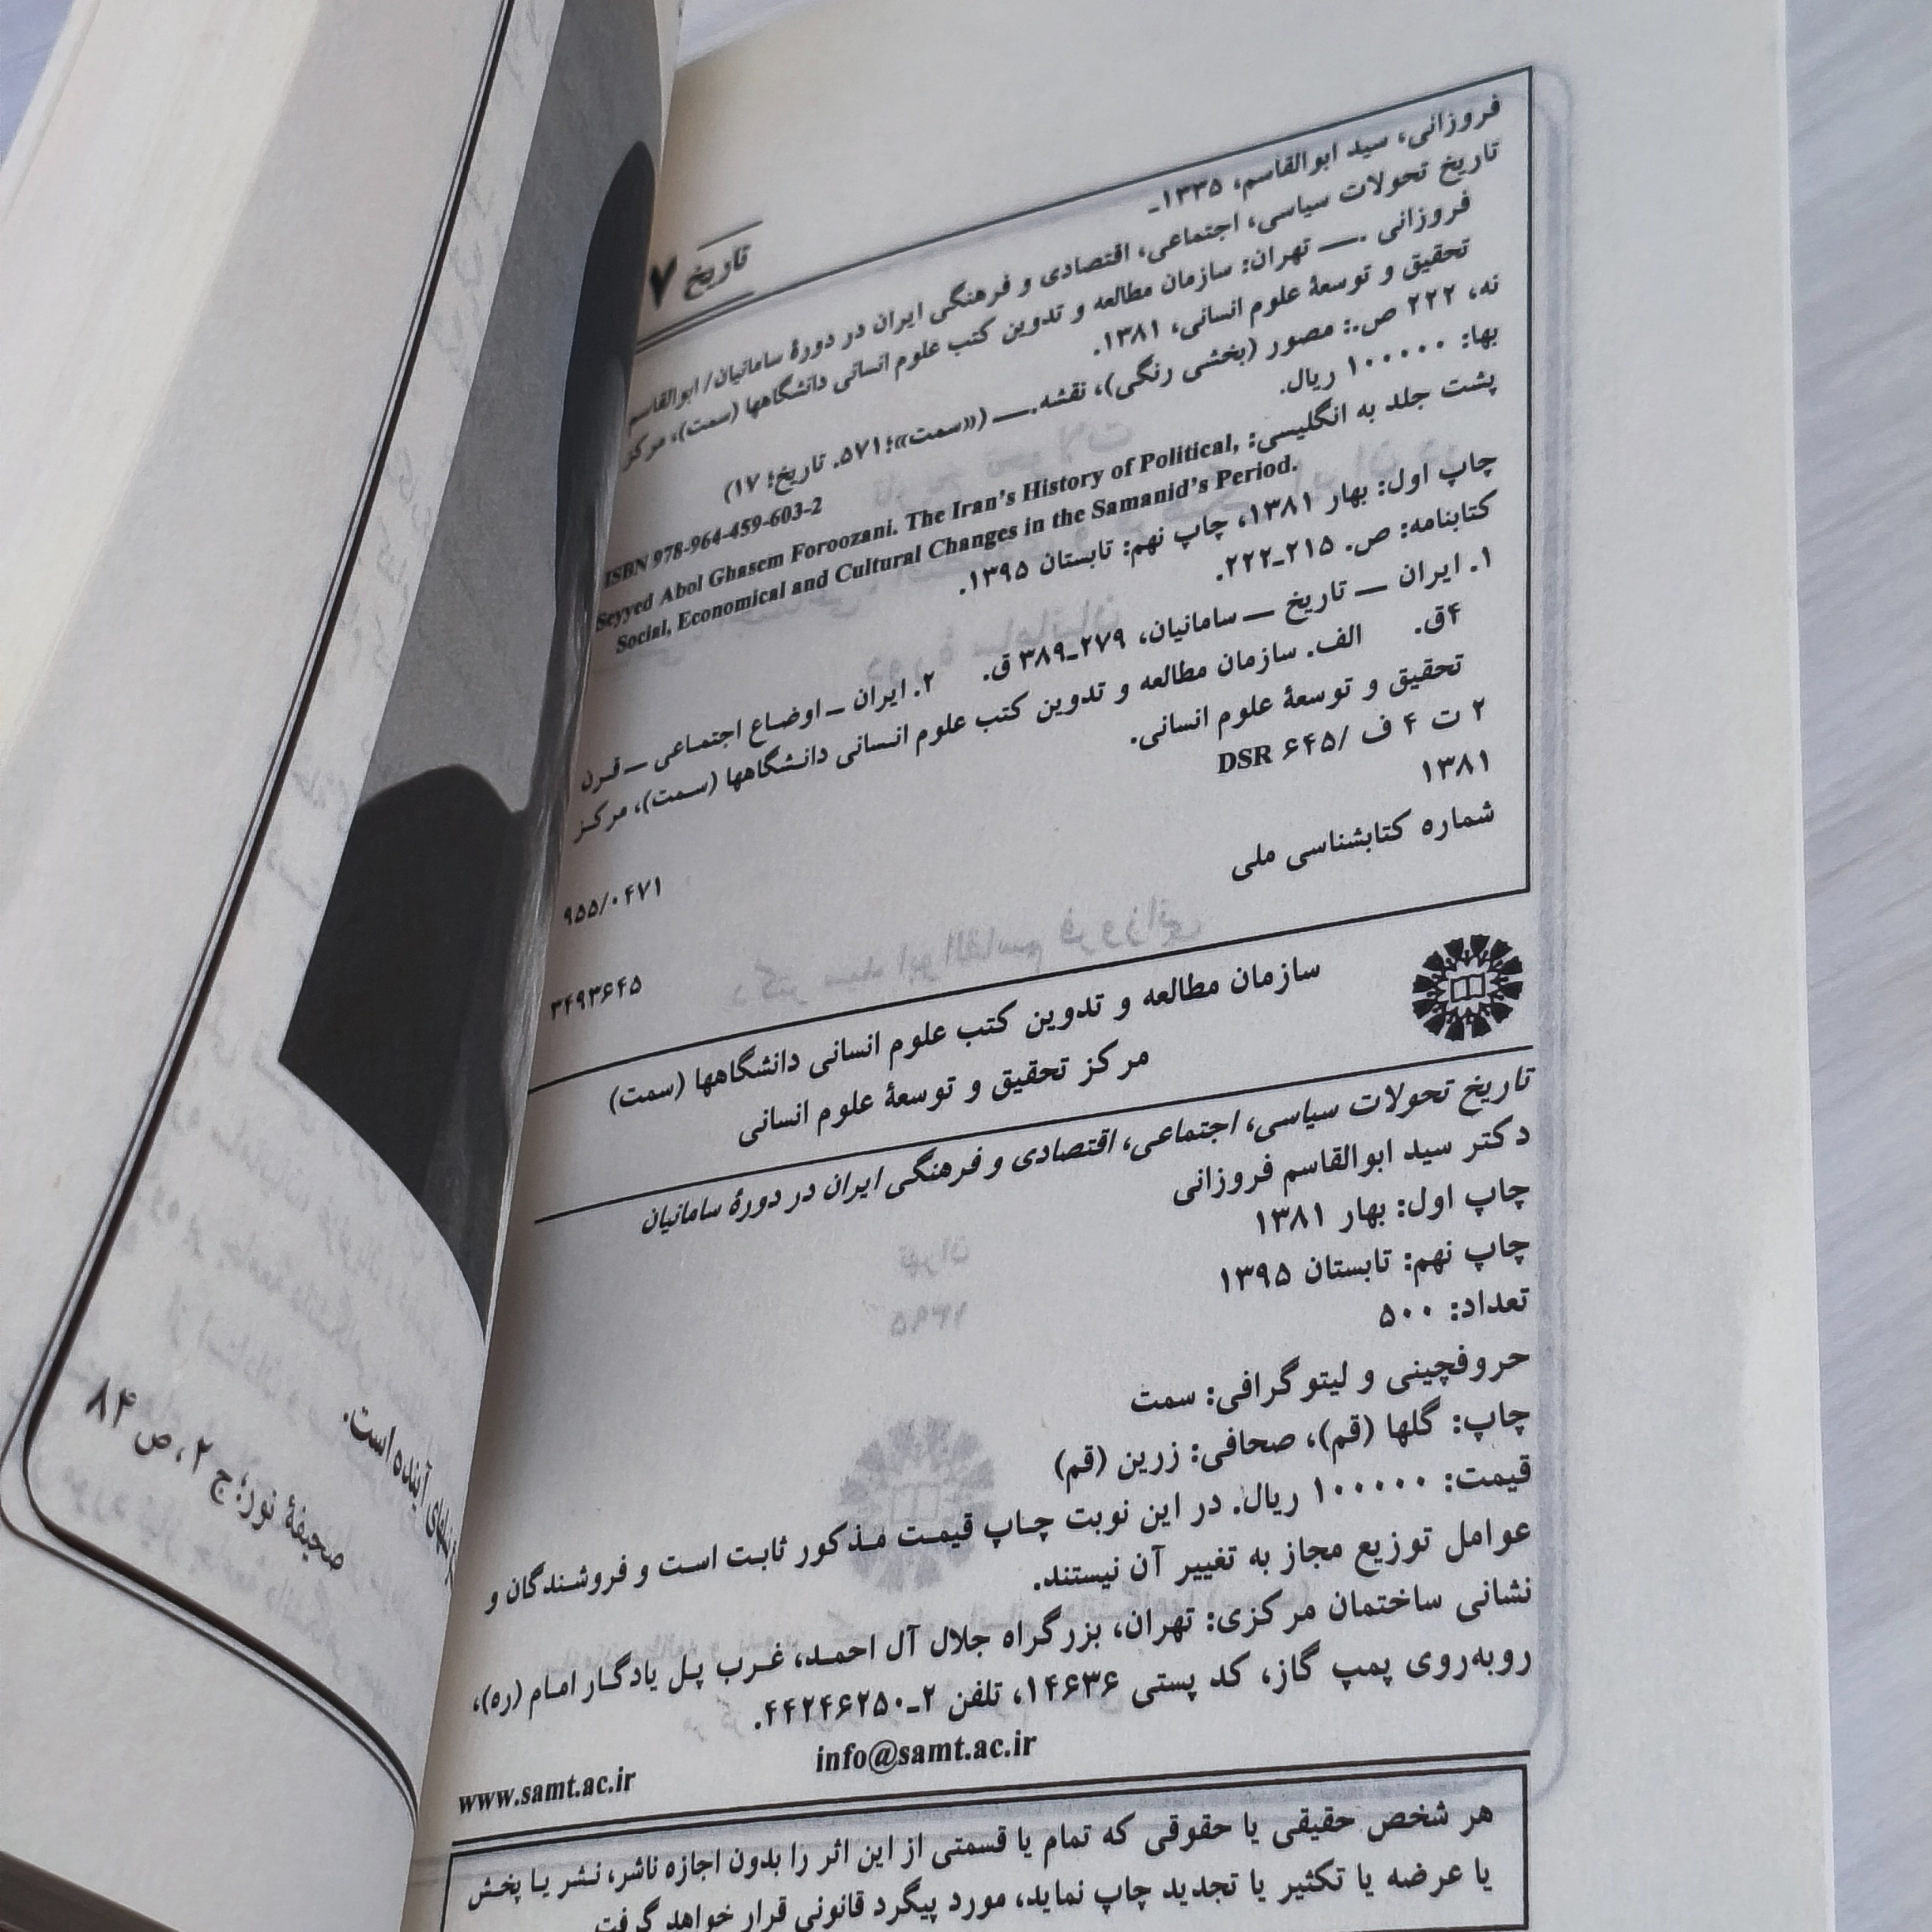 تاریخ ۷
فروزانی، سید ابوالقاسم، ۱۳۳۵ـ
تاریخ تحولات سیاسی، اجتماعی، اقتصادی و فرهنگی ایران در دورهٔ سامانیان/ ابوالقاسم
فروزانی .ــ تهران: سازمان مطالعه و تدوین کتب علوم انسانی دانشگاهها (سمت)، مرکز
تحقیق و توسعهٔ علوم انسانی، ۱۳۸۱.
نه، ۲۲۲ ص.: مصور (بخشی رنگی)، نقشه.ــ («سمت»؛ ۵۷۱. تاریخ؛ ۱۷)
بها: ۱۰۰۰۰۰ ریال.
ISBN 978-964-459-603-2
پشت جلد به انگلیسی: Seyyed Abol Ghasem Foroozani. The Iran's History of Political,
Social, Economical and Cultural Changes in the Samanid's Period.
چاپ اول: بهار ۱۳۸۱، چاپ نهم: تابستان ۱۳۹۵.
کتابنامه: ص. ۲۱۵ـ۲۲۲.
۱. ایران ــ تاریخ ــ سامانیان، ۲۷۹ـ۳۸۹ ق. ۲. ایران ــ اوضاع اجتماعی ــ قرن
۴ق. الف. سازمان مطالعه و تدوین کتب علوم انسانی دانشگاهها (سمت)، مرکز
تحقیق و توسعهٔ علوم انسانی.
۲ ت ۴ ف /۶۴۵ DSR
۱۳۸۱
۹۵۵/۰۴۷۱
شماره کتابشناسی ملی
۳۴۹۳۶۴۵
سازمان مطالعه و تدوین کتب علوم انسانی دانشگاهها (سمت)
مرکز تحقیق و توسعهٔ علوم انسانی
تاریخ تحولات سیاسی، اجتماعی، اقتصادی و فرهنگی ایران در دورهٔ سامانیان
دکتر سید ابوالقاسم فروزانی
چاپ اول: بهار ۱۳۸۱
چاپ نهم: تابستان ۱۳۹۵
تعداد: ۵۰۰
حروفچینی و لیتوگرافی: سمت
چاپ: گلها (قم)، صحافی: زرین (قم)
قیمت: ۱۰۰۰۰۰ ریال. در این نوبت چاپ قیمت مذکور ثابت است و فروشندگان و
عوامل توزیع مجاز به تغییر آن نیستند.
نشانی ساختمان مرکزی: تهران، بزرگراه جلال آل احمد، غرب پل یادگار امام (ره)،
روبه‌روی پمپ گاز، کد پستی ۱۴۶۳۶، تلفن ۲ـ۴۴۲۴۶۲۵۰.
info@samt.ac.ir
www.samt.ac.ir
هر شخص حقیقی یا حقوقی که تمام یا قسمتی از این اثر را بدون اجازه ناشر، نشر یا پخش
یا عرضه یا تکثیر یا تجدید چاپ نماید، مورد پیگرد قانونی قرار خواهد گرفت
آینده است.
صحیفهٔ نور؛ ج ۲، ص ۸۴